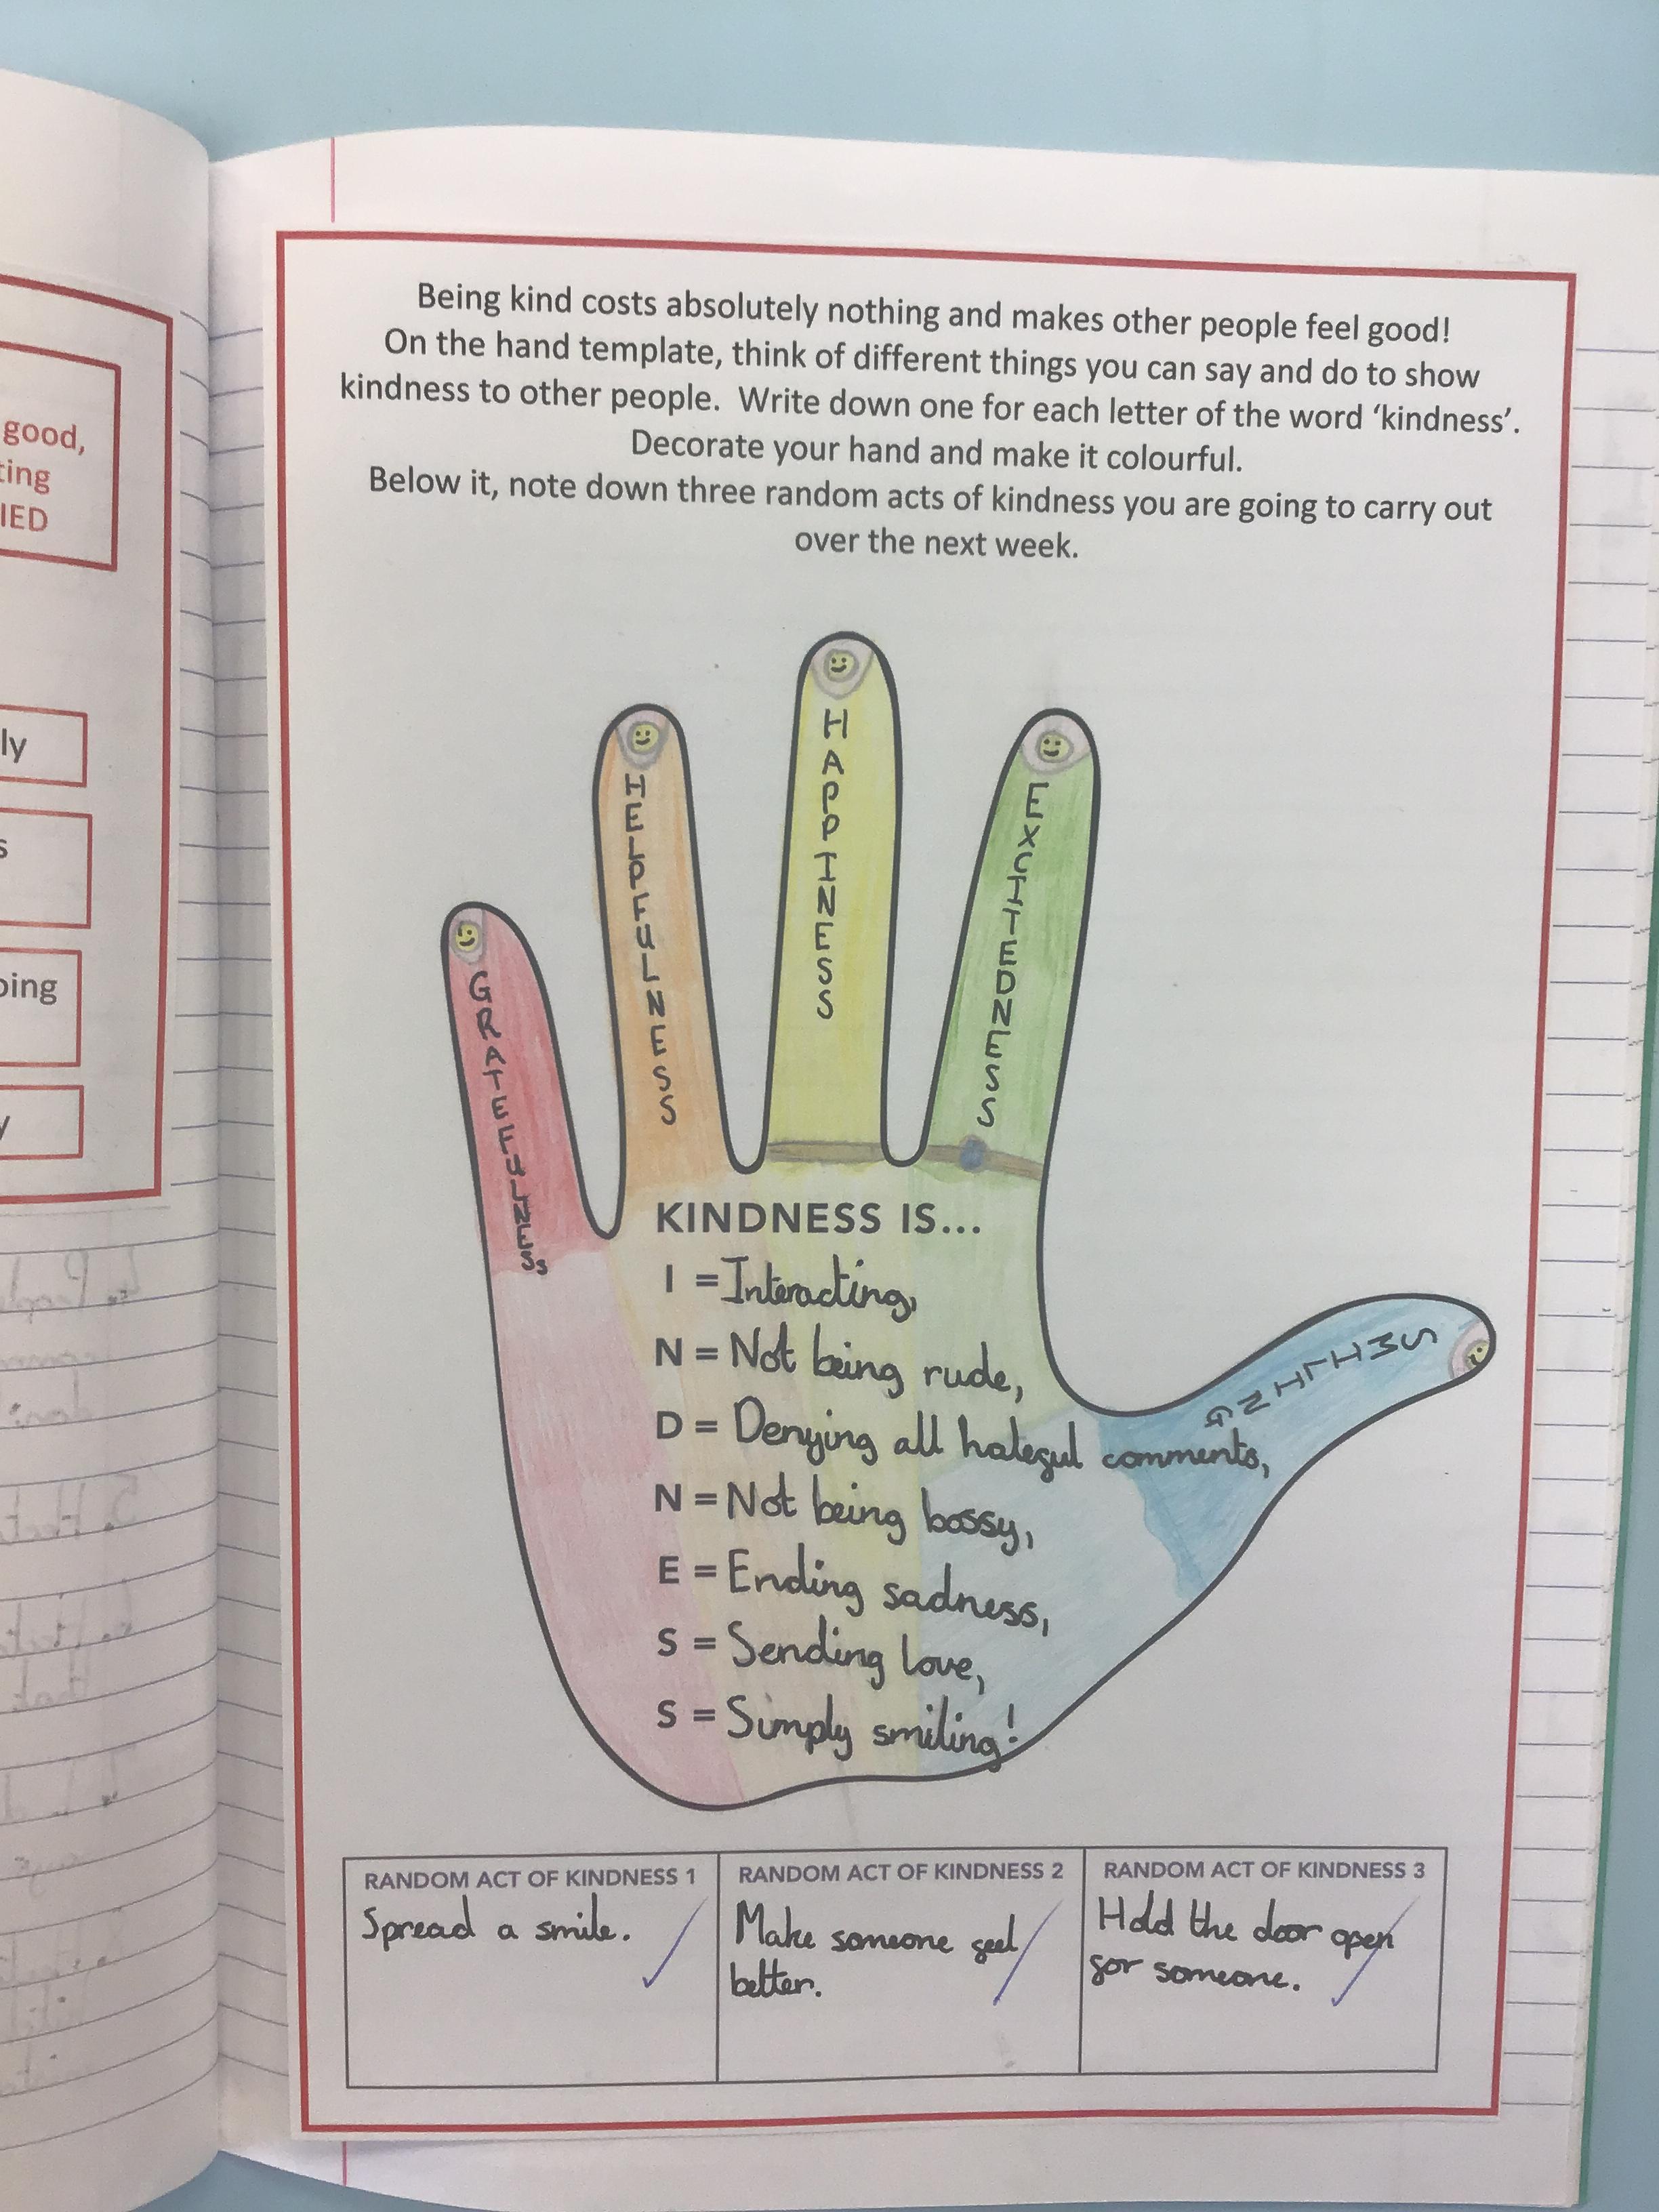 good,
ting
IED
ly
s
oing
y
Being kind costs absolutely nothing and makes other people feel good!
On the hand template, think of different things you can say and do to show
kindness to other people. Write down one for each letter of the word ‘kindness’.
Decorate your hand and make it colourful.
Below it, note down three random acts of kindness you are going to carry out
over the next week.
GRATEFULNESS
HELPFULNESS
HAPPINESS
EXCITEDNESS
SMILING
KINDNESS IS...
I = Interacting,
N = Not being rude,
D = Denying all hateful comments,
N = Not being bossy,
E = Ending sadness,
S = Sending love,
S = Simply smiling!
RANDOM ACT OF KINDNESS 1
Spread a smile.
RANDOM ACT OF KINDNESS 2
Make someone feel
better.
RANDOM ACT OF KINDNESS 3
Hold the door open
for someone.